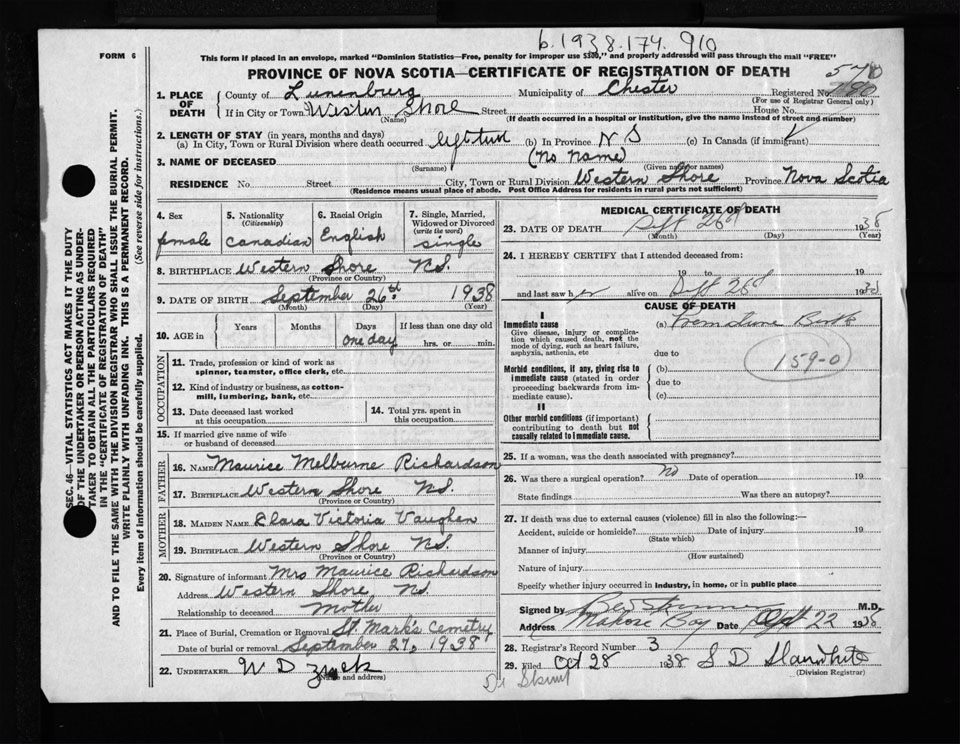 b.1938.174.910
FORM 6
This form if placed in an envelope, marked "Dominion Statistics—Free, penalty for improper use $300," and properly addressed will pass through the mail "FREE"
PROVINCE OF NOVA SCOTIA—CERTIFICATE OF REGISTRATION OF DEATH
SEC. 46—VITAL STATISTICS ACT MAKES IT THE DUTY
OF THE UNDERTAKER OR PERSON ACTING AS UNDER-
TAKER TO OBTAIN ALL THE PARTICULARS REQUIRED
IN THE "CERTIFICATE OF REGISTRATION OF DEATH"
AND TO FILE THE SAME WITH THE DIVISION REGISTRAR WHO SHALL ISSUE THE BURIAL PERMIT.
WRITE PLAINLY WITH UNFADING INK. THIS IS A PERMANENT RECORD.
Every item of information should be carefully supplied. (See reverse side for instructions.)
1. PLACE OF DEATH
County of Lunenburg Municipality of Chester Registered No.
(For use of Registrar General only)
If in City or Town Western Shore Street House No.
(Name) (If death occurred in a hospital or institution, give the name instead of street and number)
2. LENGTH OF STAY (in years, months and days)
(a) In City, Town or Rural Division where death occurred lifetime (b) In Province N S (c) In Canada (if immigrant)
3. NAME OF DECEASED (No Name)
(Surname) (Given name or names)
RESIDENCE No. Street City, Town or Rural Division Western Shore Province Nova Scotia
(Residence means usual place of abode. Post Office Address for residents in rural parts not sufficient)
4. Sex female
5. Nationality (Citizenship) Canadian
6. Racial Origin English
7. Single, Married, Widowed or Divorced (write the word) single
8. BIRTHPLACE Western Shore NS.
(Province or Country)
9. DATE OF BIRTH September 26th 1938
(Month) (Day) (Year)
10. AGE in Years Months Days one day If less than one day old hrs. or min.
OCCUPATION
11. Trade, profession or kind of work as spinner, teamster, office clerk, etc.
12. Kind of industry or business, as cotton-mill, lumbering, bank, etc.
13. Date deceased last worked at this occupation
14. Total yrs. spent in this occupation
15. If married give name of wife or husband of deceased
FATHER
16. NAME Maurice Melburne Richardson
17. BIRTHPLACE Western Shore NS.
(Province or Country)
MOTHER
18. MAIDEN NAME Clara Victoria Vaughen
19. BIRTHPLACE Western Shore NS.
(Province or Country)
20. Signature of informant Mrs Maurice Richardson
Address Western Shore NS.
Relationship to deceased Mother
21. Place of Burial, Cremation or Removal St. Mark's Cemetry
Date of burial or removal September 27, 1938
22. UNDERTAKER W D Zwek
(Name and address)
MEDICAL CERTIFICATE OF DEATH
23. DATE OF DEATH Sept 26th 1938
(Month) (Day) (Year)
24. I HEREBY CERTIFY that I attended deceased from:
19 to 19
and last saw her alive on Sept 26 1938
CAUSE OF DEATH
I
Immediate cause
Give disease, injury or complication which caused death, not the mode of dying, such as heart failure, asphyxia, asthenia, etc
(a) Premature Birth
due to
Morbid conditions, if any, giving rise to immediate cause (stated in order proceeding backwards from immediate cause).
(b)
due to
(c)
159-0
II
Other morbid conditions (if important) contributing to death but not causally related to immediate cause.
25. If a woman, was the death associated with pregnancy?
26. Was there a surgical operation? No Date of operation 19
State findings Was there an autopsy?
27. If death was due to external causes (violence) fill in also the following:—
Accident, suicide or homicide? Date of injury 19
(State which)
Manner of injury
(How sustained)
Nature of injury
Specify whether injury occurred in industry, in home, or in public place
Signed by M.D.
Address Mahone Bay Date 22 1938
28. Registrar's Record Number 3
29. Filed Oct 28 1938 S D
(Division Registrar)